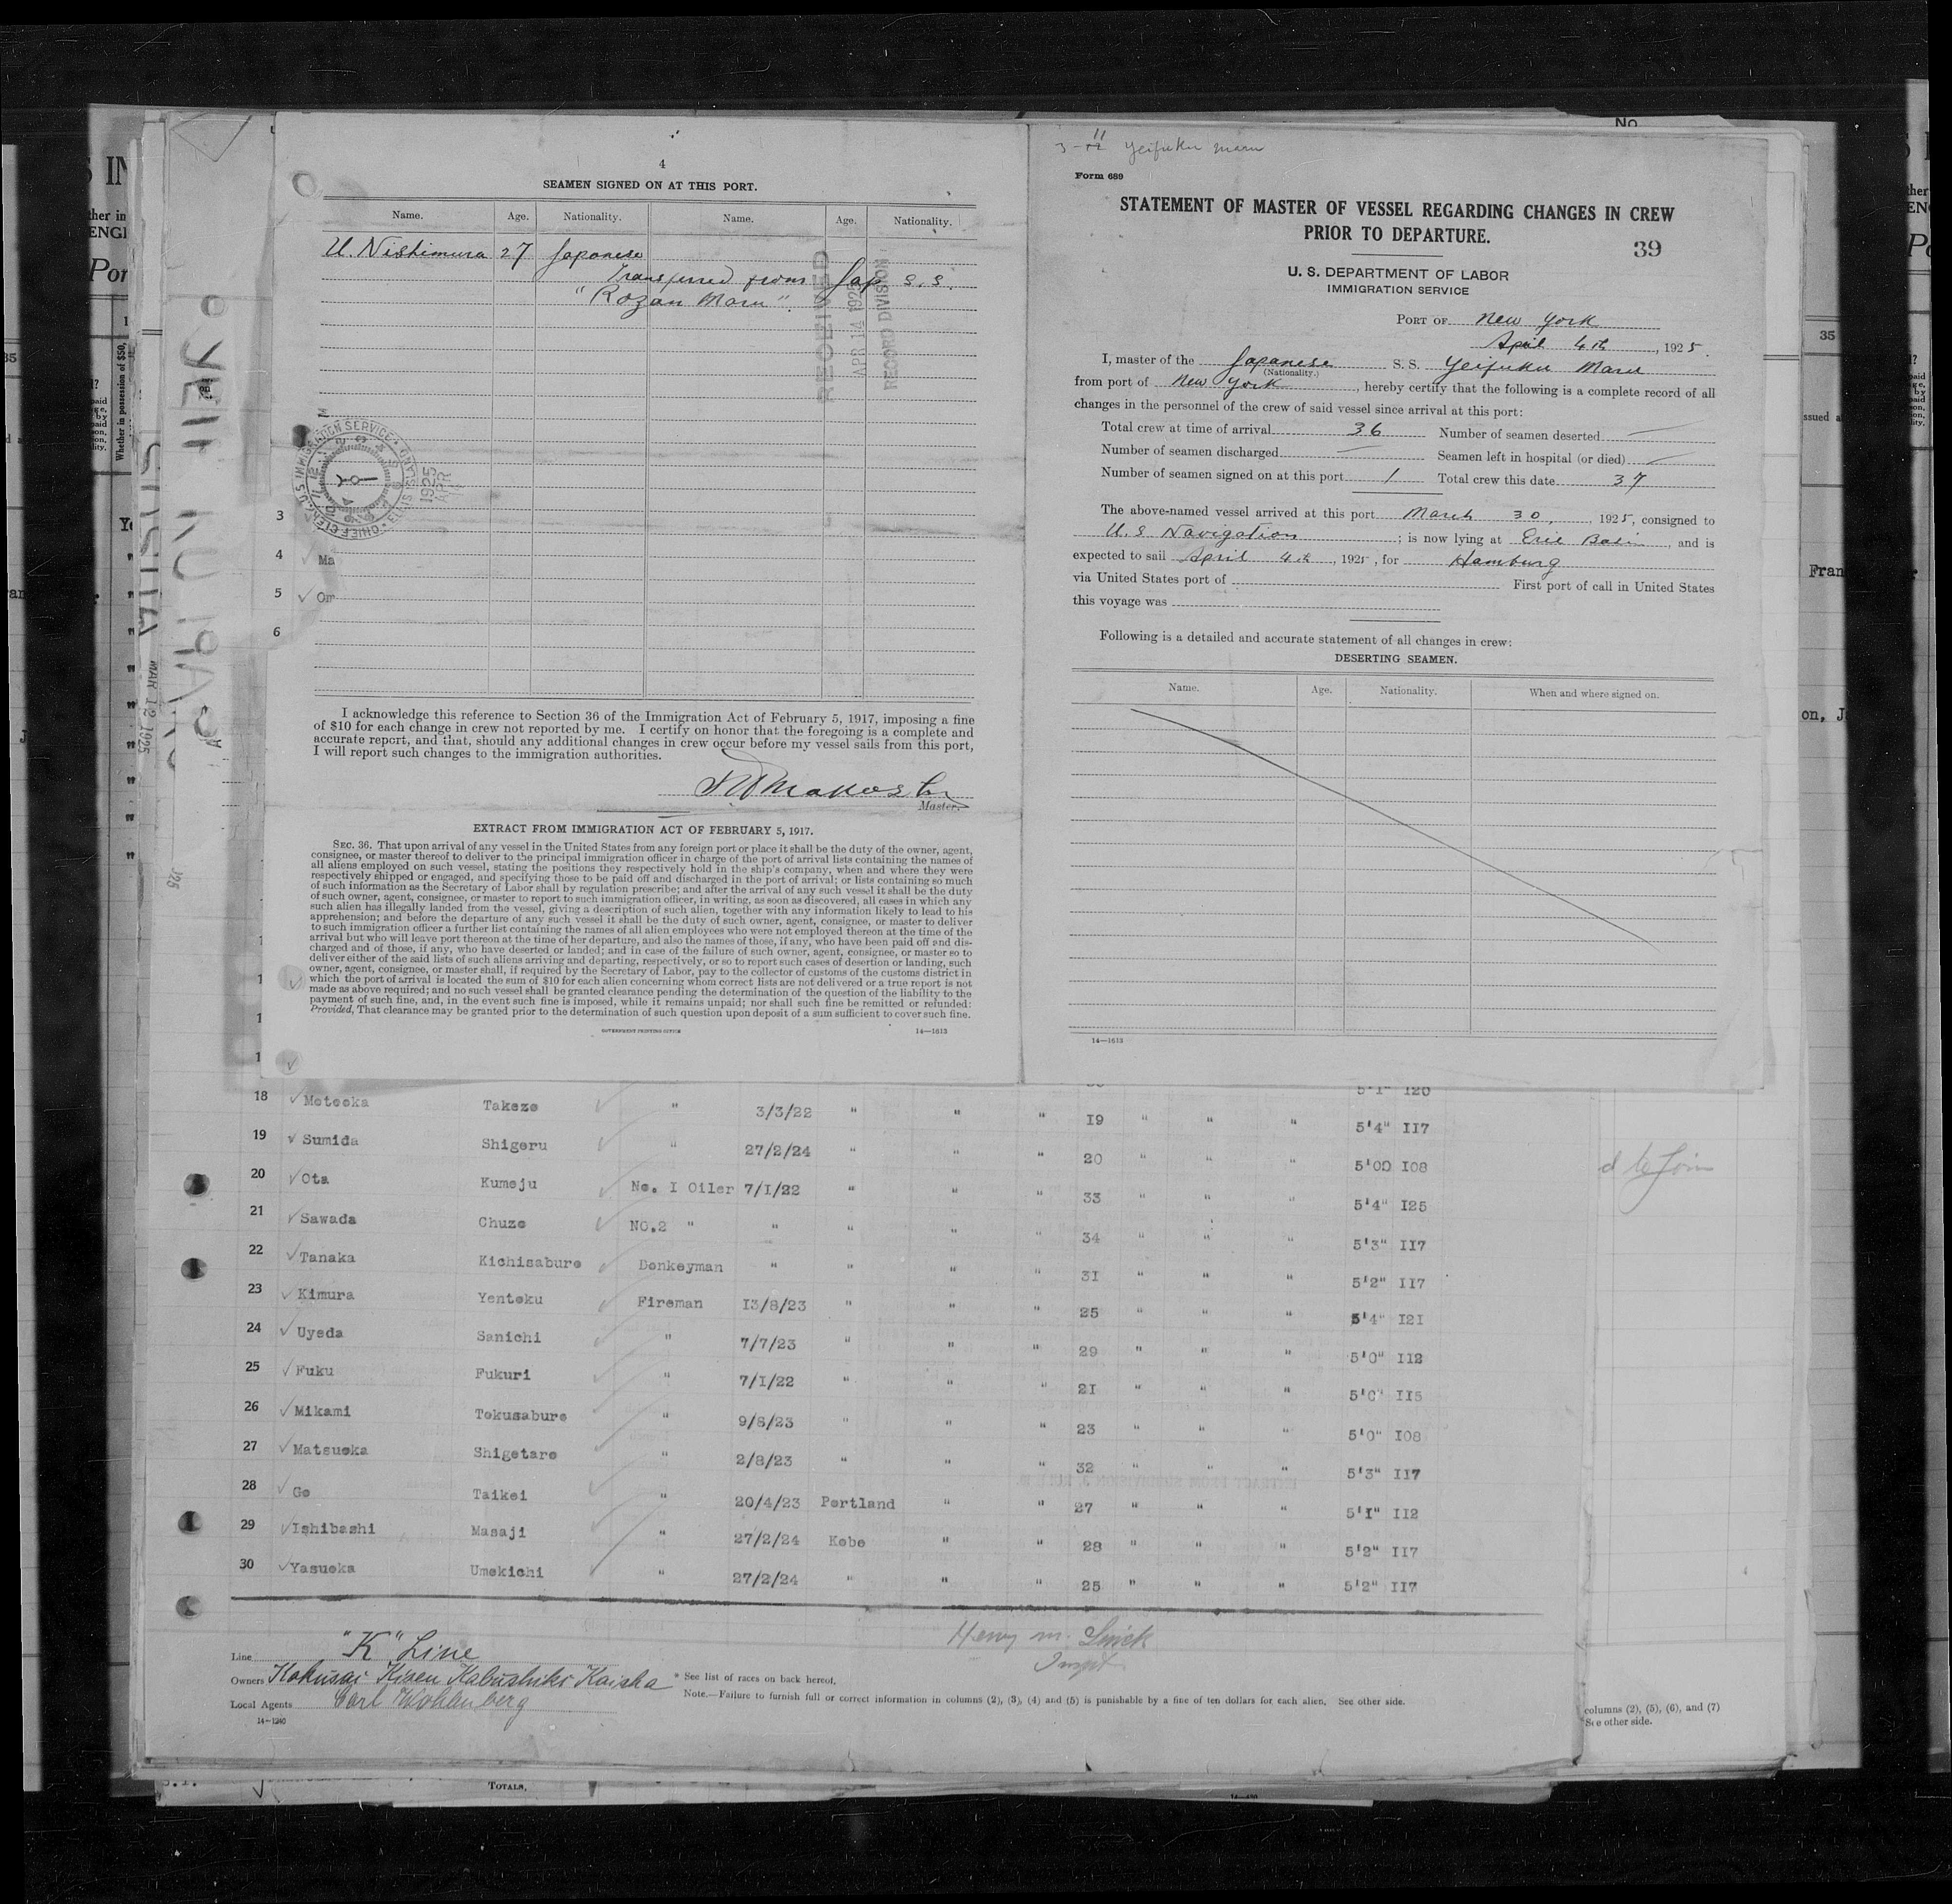 4
SEAMEN SIGNED ON AT THIS PORT.
Name. Age. Nationality. Name. Age. Nationality.
U. Nishimura 27 Japanese
Transferred from Jap S.S.
"Rozan Maru".
RECEIVED
APR 14 1925
RECORD DIVISION
I acknowledge this reference to Section 36 of the Immigration Act of February 5, 1917, imposing a fine
of $10 for each change in crew not reported by me. I certify on honor that the foregoing is a complete and
accurate report, and that, should any additional changes in crew occur before my vessel sails from this port,
I will report such changes to the immigration authorities.
Master.
EXTRACT FROM IMMIGRATION ACT OF FEBRUARY 5, 1917.
SEC. 36. That upon arrival of any vessel in the United States from any foreign port or place it shall be the duty of the owner, agent,
consignee, or master thereof to deliver to the principal immigration officer in charge of the port of arrival lists containing the names of
all aliens employed on such vessel, stating the positions they respectively hold in the ship's company, when and where they were
respectively shipped or engaged, and specifying those to be paid off and discharged in the port of arrival; or lists containing so much
of such information as the Secretary of Labor shall by regulation prescribe; and after the arrival of any such vessel it shall be the duty
of such owner, agent, consignee, or master to report to such immigration officer, in writing, as soon as discovered, all cases in which any
such alien has illegally landed from the vessel, giving a description of such alien, together with any information likely to lead to his
apprehension; and before the departure of any such vessel it shall be the duty of such owner, agent, consignee, or master to deliver
to such immigration officer a further list containing the names of all alien employees who were not employed thereon at the time of the
arrival but who will leave port thereon at the time of her departure, and also the names of those, if any, who have been paid off and dis-
charged and of those, if any, who have deserted or landed; and in case of the failure of such owner, agent, consignee, or master so to
deliver either of the said lists of such aliens arriving and departing, respectively, or so to report such cases of desertion or landing, such
owner, agent, consignee, or master shall, if required by the Secretary of Labor, pay to the collector of customs of the customs district in
which the port of arrival is located the sum of $10 for each alien concerning whom correct lists are not delivered or a true report is not
made as above required; and no such vessel shall be granted clearance pending the determination of the question of the liability to the
payment of such fine, and, in the event such fine is imposed, while it remains unpaid; nor shall such fine be remitted or refunded:
Provided, That clearance may be granted prior to the determination of such question upon deposit of a sum sufficient to cover such fine.
GOVERNMENT PRINTING OFFICE 14—1613
Yeifuku Maru
Form 689
STATEMENT OF MASTER OF VESSEL REGARDING CHANGES IN CREW
PRIOR TO DEPARTURE.
39
U. S. DEPARTMENT OF LABOR
IMMIGRATION SERVICE
PORT OF New York
April 4th, 1925.
I, master of the Japanese S. S. Yeifuku Maru
(Nationality.)
from port of New York, hereby certify that the following is a complete record of all
changes in the personnel of the crew of said vessel since arrival at this port:
Total crew at time of arrival 36 Number of seamen deserted —
Number of seamen discharged — Seamen left in hospital (or died) —
Number of seamen signed on at this port 1 Total crew this date 37
The above-named vessel arrived at this port March 30, 1925, consigned to
U.S Navigation; is now lying at Erie Basin, and is
expected to sail April 4th, 1925, for Hamburg
via United States port of First port of call in United States
this voyage was
Following is a detailed and accurate statement of all changes in crew:
DESERTING SEAMEN.
Name. Age. Nationality. When and where signed on.
14—1613
3
4 Ma
5 Om
6
MAR 12 1925
5'1" I20
18 Moteoka Takezo " 3/3/22 " " " 19 " " " 5'4" II7
19 Sumida Shigeru " 27/2/24 " " " 20 " " " 5'00 I08
20 Ota Kumeju No. I Oiler 7/I/22 " " " 33 " " " 5'4" I25
21 Sawada Chuzo NO.2 " " " " 34 " " " 5'3" II7
22 Tanaka Kichisaburo Donkeyman " " " " 31 " " " 5'2" II7
23 Kimura Yentoku Fireman I3/8/23 " " " 25 " " " 5'4" I2I
24 Uyeda Sanichi " 7/7/23 " " " 29 " " " 5'0" II2
25 Fuku Fukuri " 7/I/22 " " " 2I " " " 5'0" II5
26 Mikami Tokusaburo " 9/8/23 " " " 23 " " " 5'0" I08
27 Matsuoka Shigetaro " 2/8/23 " " " 32 " " " 5'3" II7
28 Go Taikei " 20/4/23 Portland " " 27 " " " 5'I" II2
29 Ishibashi Masaji " 27/2/24 Kobe " " 28 " " " 5'2" II7
30 Yasuoka Umekichi " 27/2/24 " " " 25 " " " 5'2" II7
Line "K" Line
Owners Kokusai Kisen Kabushiki Kaisha
Local Agents Carl Wohlenberg
14—1240
Henry M.
* See list of races on back hereof.
Note.—Failure to furnish full or correct information in columns (2), (3), (4) and (5) is punishable by a fine of ten dollars for each alien. See other side.
columns (2), (5), (6), and (7)
See other side.
TOTALS,